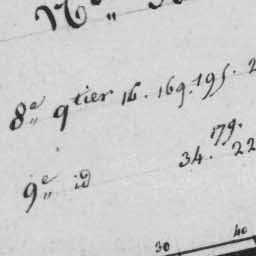 8e qtier 16. 169. 195. 2
179.
9e id 34. 22
30 40